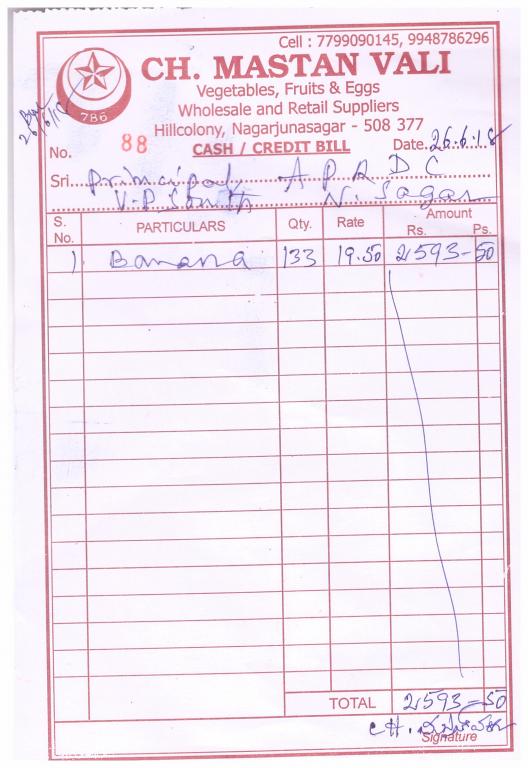 Cell : 7799090145, 9948786296
786
CH. MASTAN VALI
Vegetables, Fruits & Eggs
Wholesale and Retail Suppliers
Hillcolony, Nagarjunasagar - 508 377
26/6/18
No. 88 CASH / CREDIT BILL Date. 26.6.18
Sri. Principal, A P R D C
V.P. South N. Sagar
S. No. PARTICULARS Qty. Rate Amount Rs. Ps.
1. Banana 133 19.50 2593-50
TOTAL 2593=50
CH.
Signature